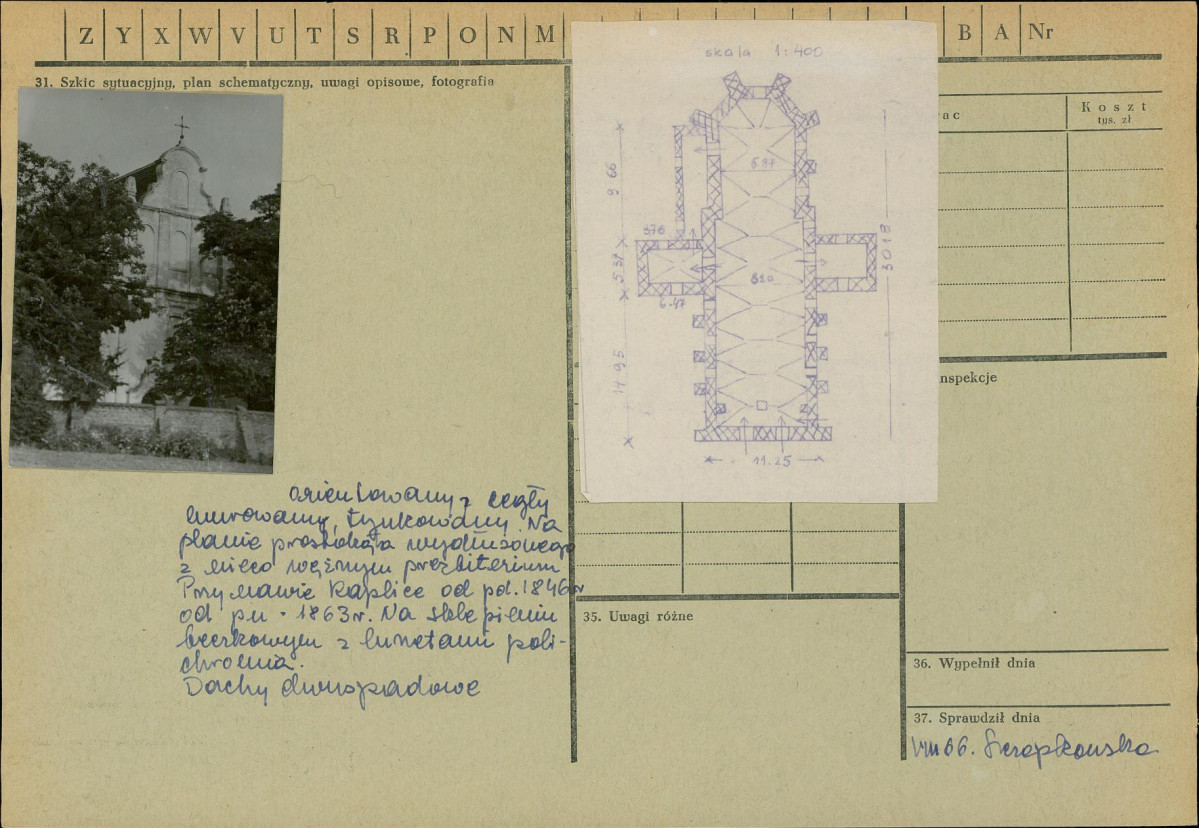 Z Y X W V U T S R P O N M B A Nr
31. Szkic sytuacyjny, plan schematyczny, uwagi opisowe, fotografia
skala 1:400
5.37
9.66
376
5.37
6.47
810
14.95
3018
11.25
ac
Koszt
tys. zł
nspekcje
orientowany z cegły
murowany, tynkowany. Na
planie prostokąta wydłużonego
z nieco węższym prezbiterium
Przy nawie kaplice od pd. 1846 r
od pn - 1863 r. Na sklepieniu
beczkowym z lunetami poli-
chromia.
Dachy dwuspadowe
35. Uwagi różne
36. Wypełnił dnia
37. Sprawdził dnia
VIII 66.